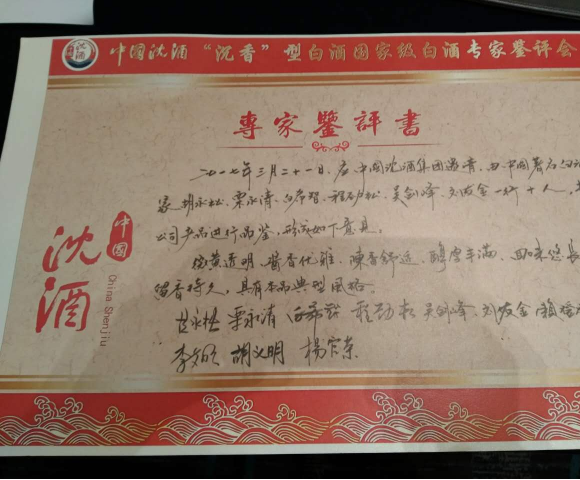 中国沈酒“沉香”型白酒国家级白酒专家鉴评会
專家鑒評書
二〇一七年三月二十一日，应中国沈酒集团邀请，由中国著名白酒
家胡永松、栗永清、白希智、程劲松、吴剑峰、刘友金一行十人，
公司产品进行品鉴，形成如下意见。
微黄透明、酱香优雅、陳香舒适、醇厚丰满、回味悠長
留香持久，具有本品典型風格。
胡永松 栗永清 白希智 程劲松 吴剑峰 刘友金
李 胡义明 楊官荣
中国
沈酒
China Shenjiu